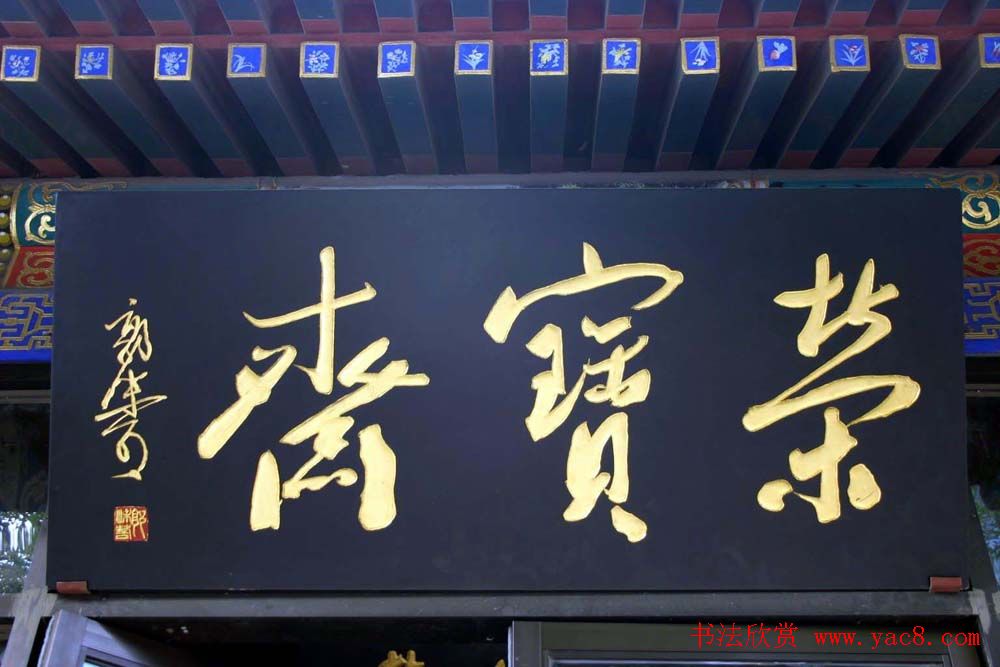 榮寳齋
郭沫若
书法欣赏 www.yac8.com